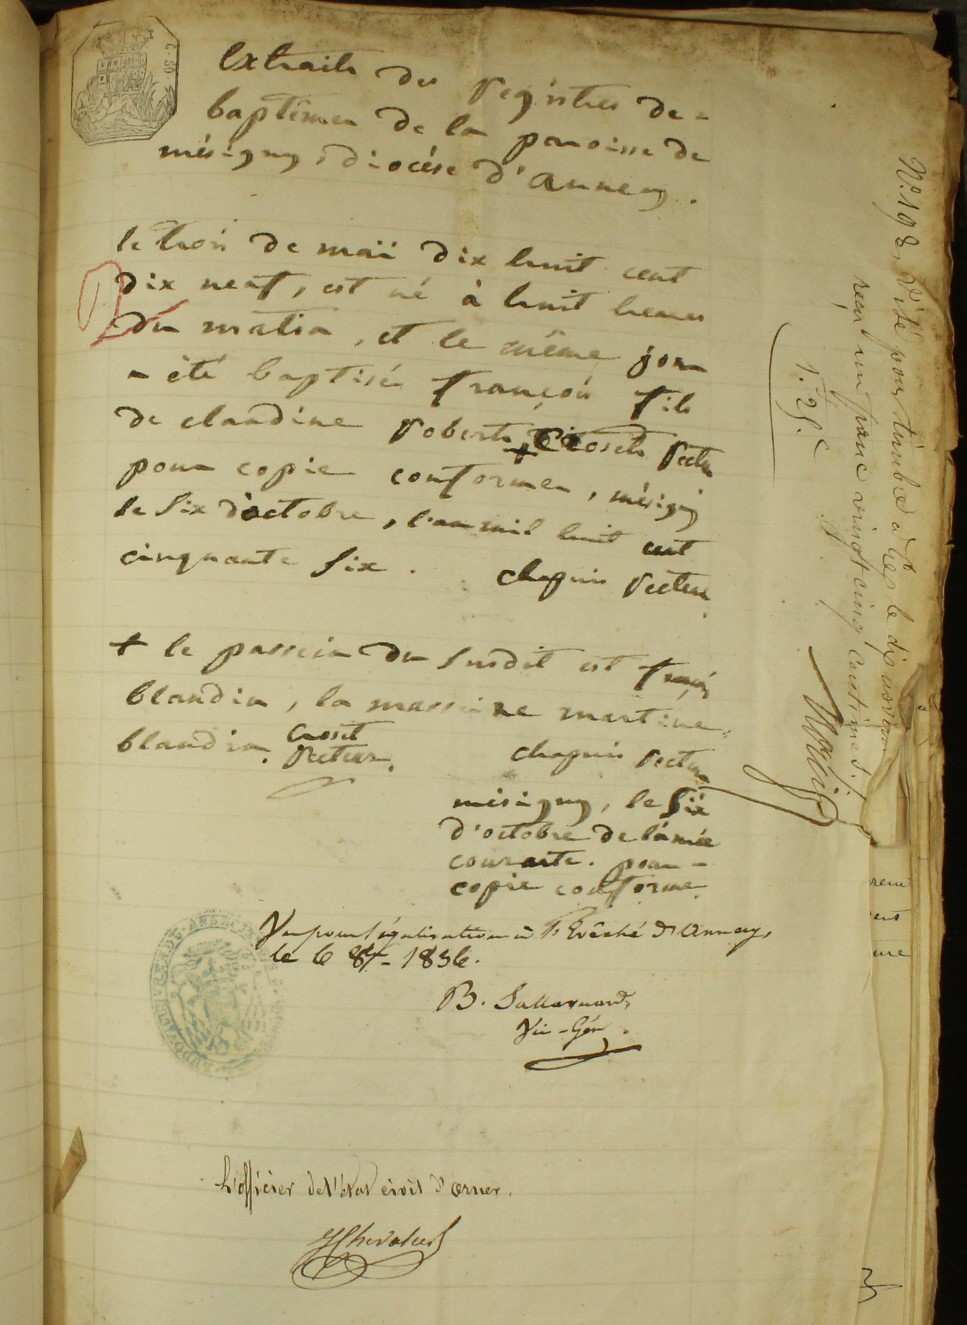 Extraits des régistres de =
baptêmes de la paroisse de
mésigny, diocèse d'annecy.
le trois de maï dix huit cent
dix neuf, est né à huit heures
du matin, et le même jour
a été baptisé françois fils
de claudine Roberts, + Crosets Recteur
pour copie conforme, mésigny
le six d'octobre, l'an mil huit cent
cinquante six. chapuis Recteur
+ le parrein du susdit est françois
blandin, la marreine martine
blandin. Croset Recteur. chapuis Recteur
mésigny, le six
d'octobre de l'année
courante. pour -
copie conforme
Vu pour légalisation à l'Evêché d'Annecy,
le 6 8bre 1856.
B.
Vic-Gén.
L'officier de l'état civil d'
Chevalier
N.º 198. Visé pour timbre à
reçu un franc vingt cinq centimes.
1.f 25.c